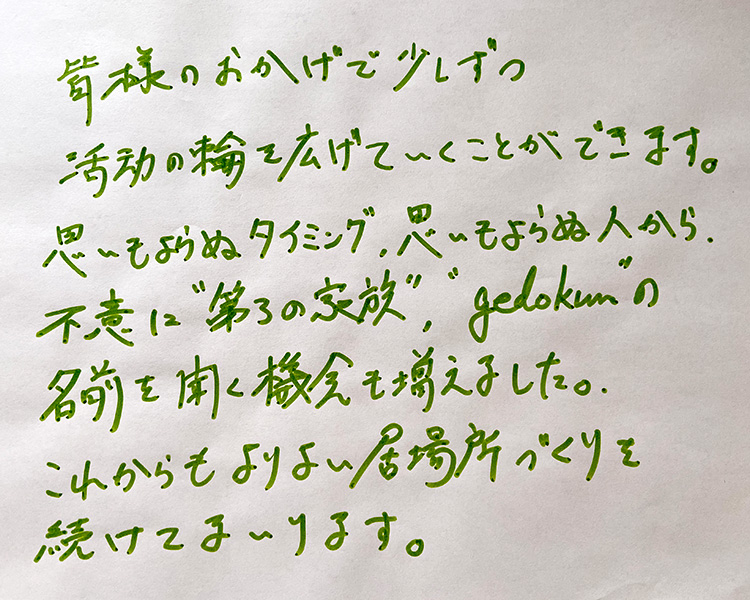 皆様のおかげで少しずつ
活動の輪を広げていくことができます。
思いもよらぬタイミング、思いもよらぬ人から、
不意に"第3の家族"、"gedokun"の
名前を聞く機会も増えました。
これからもよりよい居場所づくりを
続けてまいります。